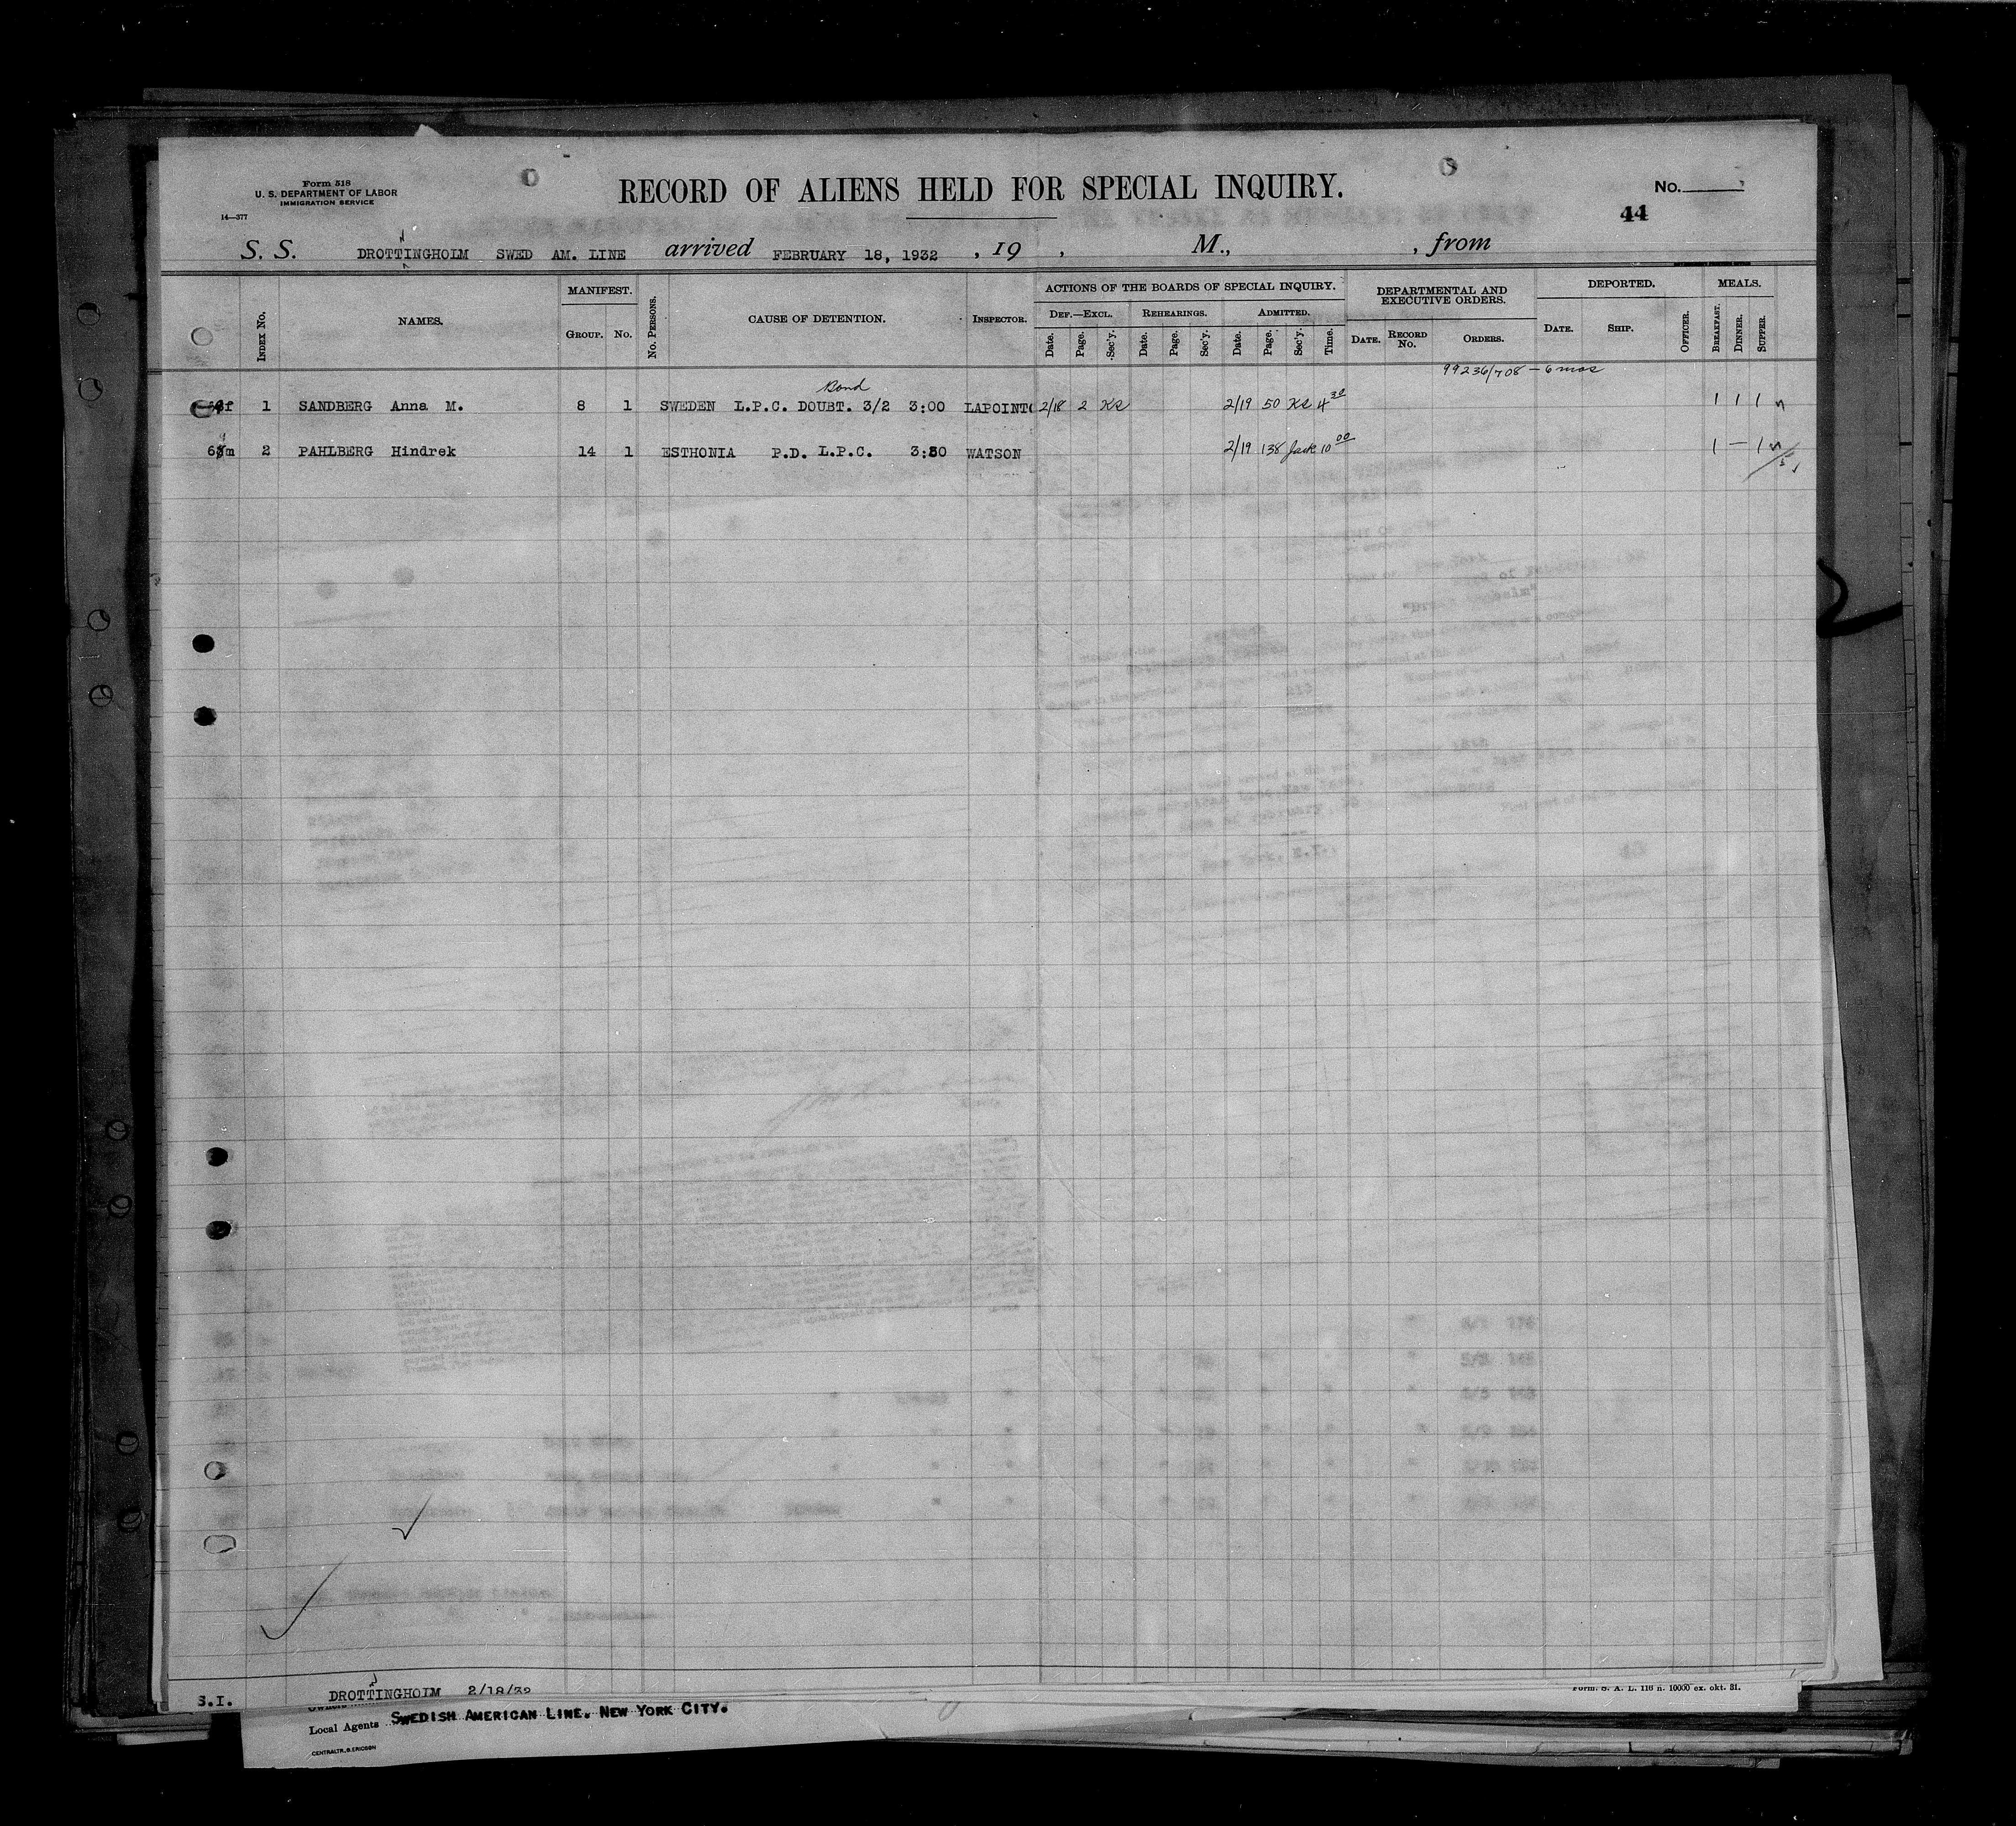 Form 518
U. S. DEPARTMENT OF LABOR
IMMIGRATION SERVICE
14—377
RECORD OF ALIENS HELD FOR SPECIAL INQUIRY.
No.
44
S. S. DROTTINGHOLM SWED AM. LINE arrived FEBRUARY 18, 1932 , 19 , M., , from
INDEX No.
NAMES.
MANIFEST.
GROUP. No.
No. PERSONS.
CAUSE OF DETENTION.
INSPECTOR.
ACTIONS OF THE BOARDS OF SPECIAL INQUIRY.
DEF.—EXCL. REHEARINGS. ADMITTED.
Date. Page. Sec'y. Date. Page. Sec'y. Date. Page. Sec'y. Time.
DEPARTMENTAL AND
EXECUTIVE ORDERS.
DATE. RECORD No. ORDERS.
DEPORTED.
DATE. SHIP. OFFICER.
MEALS.
BREAKFAST. DINNER. SUPPER.
99236/708 — 6 mos
Bond
f 1 SANDBERG Anna M. 8 1 SWEDEN L.P.C. DOUBT. 3/2 3:00 LAPOINT 2/18 2 KS 2/19 50 KS 4 30 1 1 1
m 2 PAHLBERG Hindrek 14 1 ESTHONIA P.D. L.P.C. 3:50 WATSON 2/19 138 Jack 10 00 1 — 1
S.I. DROTTINGHOLM 2/18/32
Form. S. A. L. 116 n. 10000 ex. okt. 31.
Local Agents SWEDISH AMERICAN LINE. NEW YORK CITY.
CENTRALTR. G. ERICSON